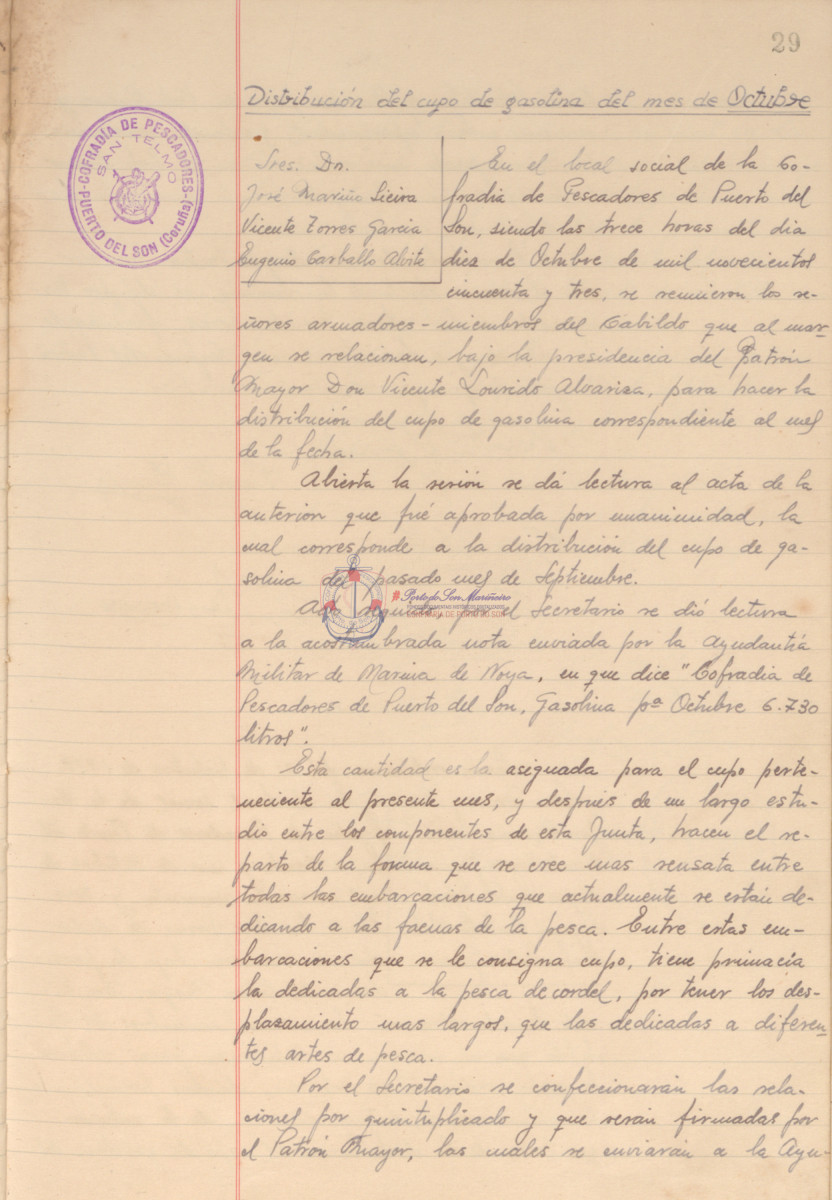 29
Distribución del cupo de gasolina del mes de Octubre
COFRADÍA DE PESCADORES
SAN TELMO
PUERTO DEL SON (Coruña)
Sres. Dn.
José Mariño Sieira
Vicente Torres Garcia
Eugenio Carballo Alvite
En el local social de la Co-
fradia de Pescadores de Puerto del
Son, siendo las trece horas del dia
diez de Octubre de mil novecientos
cincuenta y tres, se reunieron los se-
ñores armadores - miembros del Cabildo que al mar-
gen se relacionan, bajo la presidencia del Patrón
Mayor Don Vicente Lourido Alvariza, para hacer la
distribución del cupo de gasolina correspondiente al mes
de la fecha.
Abierta la sesión se dá lectura al acta de la
anterior que fué aprobada por unanimidad, la
cual corresponde a la distribución del cupo de ga-
solina del pasado mes de Septiembre.
# Porto do Son Mariñeiro
Acto seguido por el Secretario se dió lectura
a la acostumbrada nota enviada por la Ayudantía
Militar de Marina de Noya, en que dice "Cofradia de
Pescadores de Puerto del Son, Gasolina pª Octubre 6.730
litros".
Esta cantidad es la asignada para el cupo perte-
neciente al presente mes, y después de un largo estu-
dio entre los componentes de esta Junta, hacen el re-
parto de la forma que se cree mas sensata entre
todas las embarcaciones que actualmente se están de-
dicando a las faenas de la pesca. Entre estas em-
barcaciones que se le consigna cupo, tiene primacía
la dedicadas a la pesca de cordel, por tener los des-
plazamiento mas largos, que las dedicadas a diferen-
tes artes de pesca.
Por el Secretario se confeccionarán las rela-
ciones por quintuplicado y que serán firmadas por
el Patrón Mayor, las cuales se enviarán a la Ayu-